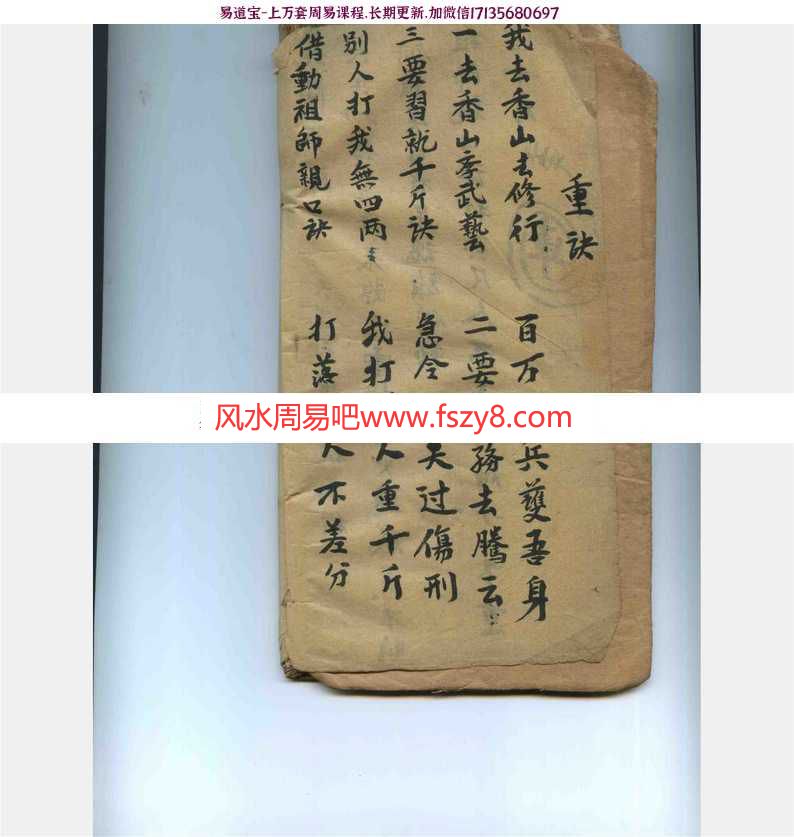 易道宝-上万套周易课程.长期更新.加微信17135680697
重訣
我去香山去修行 百万兵護吾身
一去香山斈武藝 二要務去騰云
三要習就千斤訣 急令天过傷刑
别人打我無四两 我打人重千斤
借動祖師親口訣 打落人不差分
风水周易吧www.fszy8.com